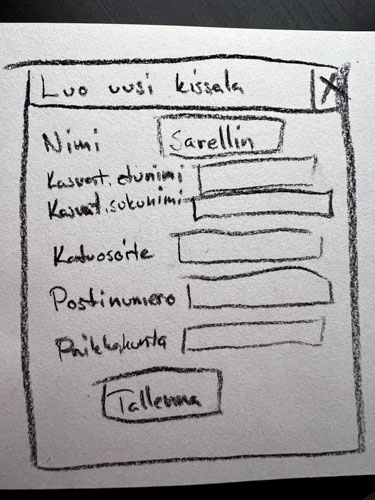 Luo uusi kissala X
Nimi Sarellin
Kasvat. etunimi
Kasvat. sukunimi
Katuosoite
Postinumero
Paikkakunta
Tallenna